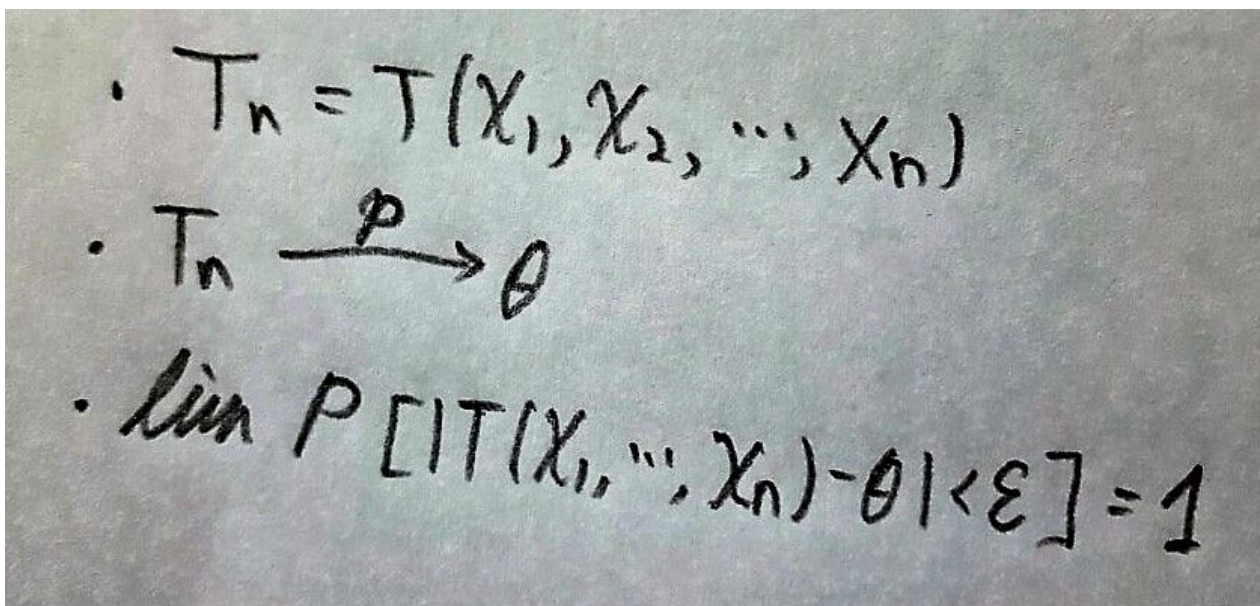 · Tₙ = T(X₁, X₂, ..., Xₙ)
· Tₙ —p→ θ
· lim P [|T(X₁, ..., Xₙ) - θ| < ε] = 1